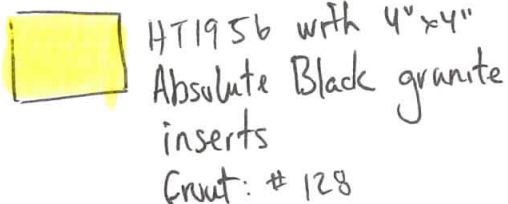 HT1956 with 4"x4"
Absolute Black granite
inserts
Grout: # 128